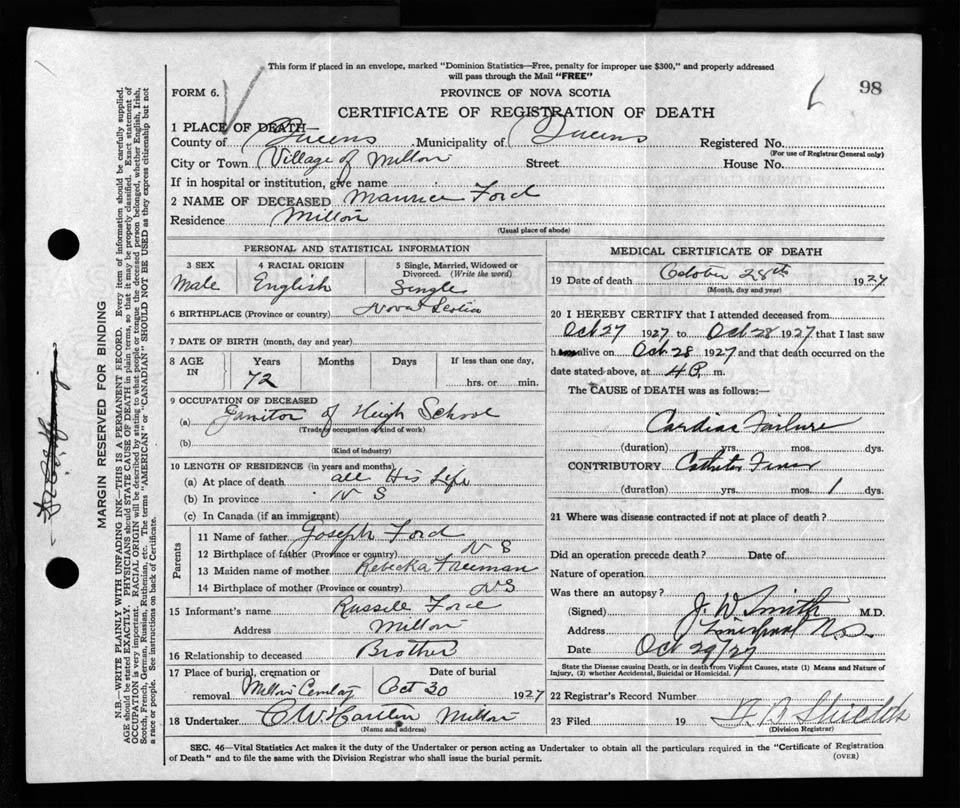 This form if placed in an envelope, marked "Dominion Statistics—Free, penalty for improper use $300," and properly addressed
will pass through the Mail "FREE"
FORM 6.
PROVINCE OF NOVA SCOTIA
98
CERTIFICATE OF REGISTRATION OF DEATH
1 PLACE OF DEATH
County of Queens Municipality of Queens Registered No.
(For use of Registrar General only)
City or Town Village of Milton Street House No.
If in hospital or institution, give name
2 NAME OF DECEASED Maurice Ford
Residence Milton
(Usual place of abode)
PERSONAL AND STATISTICAL INFORMATION
3 SEX 4 RACIAL ORIGIN 5 Single, Married, Widowed or
Divorced. (Write the word)
Male English Single
6 BIRTHPLACE (Province or country) Nova Scotia
7 DATE OF BIRTH (month, day and year)
8 AGE IN Years Months Days If less than one day,
72 hrs. or min.
9 OCCUPATION OF DECEASED
(a) Janitor of Heigh School
(Trade, occupation or kind of work)
(b)
(Kind of industry)
10 LENGTH OF RESIDENCE (in years and months)
(a) At place of death all His Life
(b) In province N S
(c) In Canada (if an immigrant)
Parents
11 Name of father Joseph Ford
12 Birthplace of father (Province or country) N S
13 Maiden name of mother Rebecka Freeman
14 Birthplace of mother (Province or country) N S
15 Informant's name Russell Ford
Address Milton
16 Relationship to deceased Brother
17 Place of burial, cremation or Date of burial
removal Milton Cemetay Oct 30 1927
18 Undertaker C W Milton
(Name and address)
MEDICAL CERTIFICATE OF DEATH
19 Date of death October 28th 1927
(Month, day and year)
20 I HEREBY CERTIFY that I attended deceased from
Oct 27 1927 to Oct 28 1927 that I last saw
him alive on Oct 28 1927 and that death occurred on the
date stated above, at 4 P. m.
The CAUSE of DEATH was as follows:
Cardiac Failure
(duration) yrs. mos. dys.
CONTRIBUTORY
(duration) yrs. mos. 1 dys.
21 Where was disease contracted if not at place of death?
Did an operation precede death? Date of
Nature of operation
Was there an autopsy?
(Signed) J. W Smith M.D.
Address Liverpool N.S.
Date Oct 29/27
State the Disease causing Death, or in death from Violent Causes, state (1) Means and Nature of
Injury, (2) whether Accidental, Suicidal or Homicidal.
22 Registrar's Record Number
23 Filed 19 Shields
(Division Registrar)
SEC. 46—Vital Statistics Act makes it the duty of the Undertaker or person acting as Undertaker to obtain all the particulars required in the "Certificate of Registration
of Death" and to file the same with the Division Registrar who shall issue the burial permit.
(OVER)
MARGIN RESERVED FOR BINDING
N.B.—WRITE PLAINLY WITH UNFADING INK—THIS IS A PERMANENT RECORD. Every item of information should be carefully supplied.
AGE should be stated EXACTLY. PHYSICIANS should STATE CAUSE OF DEATH in plain terms, so that it may be properly classified. Exact statement of
OCCUPATION is very important. RACIAL ORIGIN will be described by stating to what people or tongue the deceased person belonged, whether English, Irish,
Scotch, French, German, Russian, Ruthenian, etc. The terms "AMERICAN" or "CANADIAN" SHOULD NOT BE USED as they express citizenship but not
a race or people. See instructions on back of Certificate.